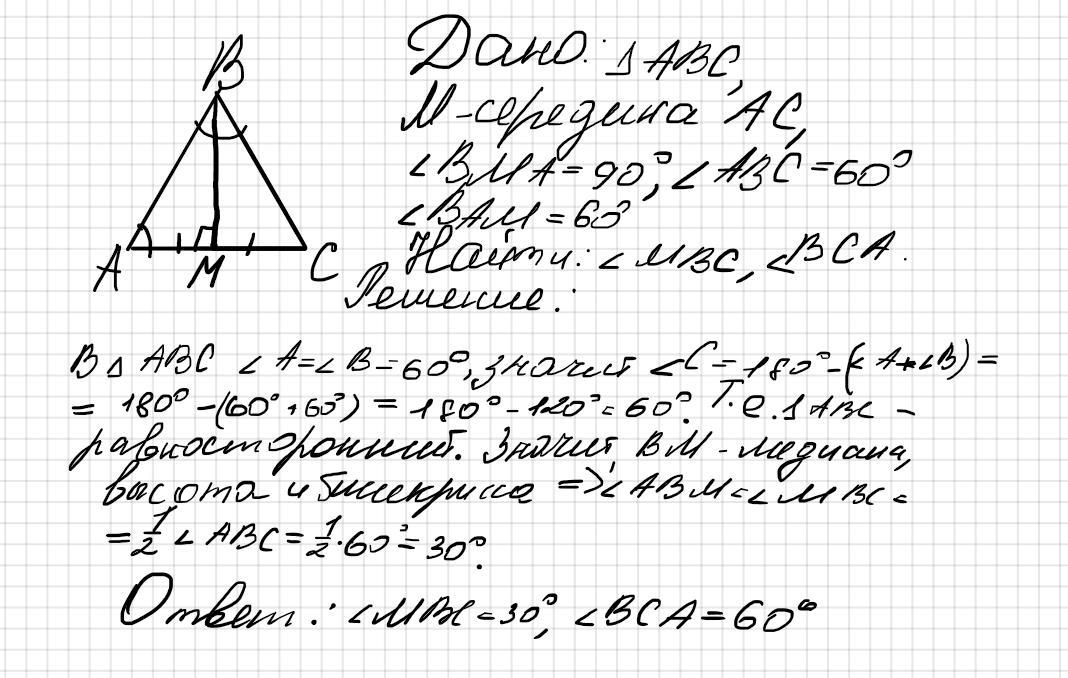 B
A
M
C
Дано: Δ ABC,
M-середина AC,
∠BMA=90°, ∠ABC=60°
∠BAM=60°
Найти: ∠MBC, ∠BCA.
Решение:
В Δ ABC ∠A=∠B=60°, значит ∠C=180°-(∠A+∠B)=
= 180°-(60°+60°)=180°-120°=60°. Т.е. Δ ABC -
равносторонний. Значит, BM - медиана,
высота и биссектриса => ∠ABM=∠MBC=
=1/2 ∠ABC=1/2·60°=30°.
Ответ: ∠MBC=30°, ∠BCA=60°